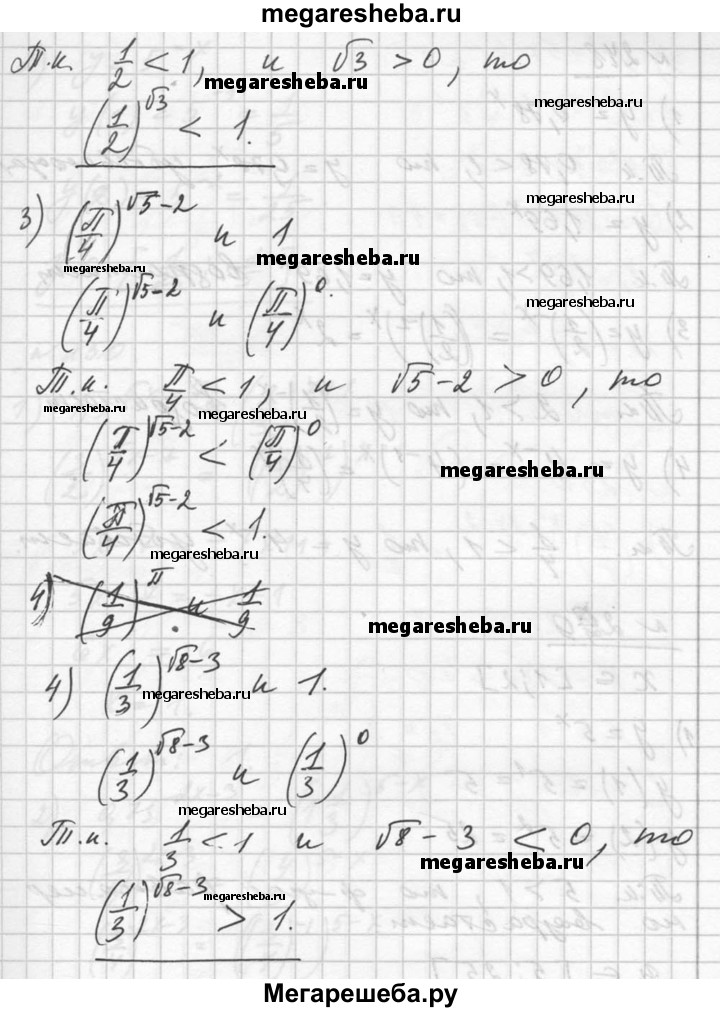 megaresheba.ru
Т.к. 1/2 < 1, и √3 > 0, то
megaresheba.ru
megaresheba.ru
(1/2)^√3 < 1.
3) (π/4)^(√5-2) и 1
megaresheba.ru
megaresheba.ru
megaresheba.ru
(π/4)^(√5-2) и (π/4)^0.
megaresheba.ru
Т.к. π/4 < 1, и √5-2 > 0, то
megaresheba.ru
megaresheba.ru
(π/4)^(√5-2) < (π/4)^0
megaresheba.ru
(π/4)^(√5-2) < 1.
megaresheba.ru
4) (1/9)^π и 1/9
megaresheba.ru
4) (1/3)^(√8-3) и 1.
megaresheba.ru
(1/3)^(√8-3) и (1/3)^0
megaresheba.ru
Т.к. 1/3 < 1 и √8-3 < 0, то
megaresheba.ru
(1/3)^(√8-3) > 1.
megaresheba.ru
Мегарешеба.ру